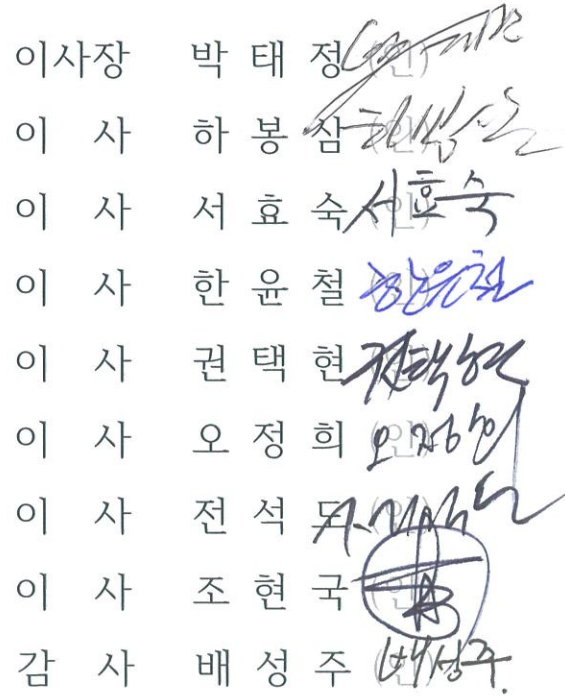 이사장 박 태 정 (인)
이 사 하 봉 삼 (인)
이 사 서 효 숙 (인) 서효숙
이 사 한 윤 철 (인) 한윤철
이 사 권 택 현 (인) 권택현
이 사 오 정 희 (인) 오정희
이 사 전 석 도 (인)
이 사 조 현 국 (인)
감 사 배 성 주 (인) 배성주